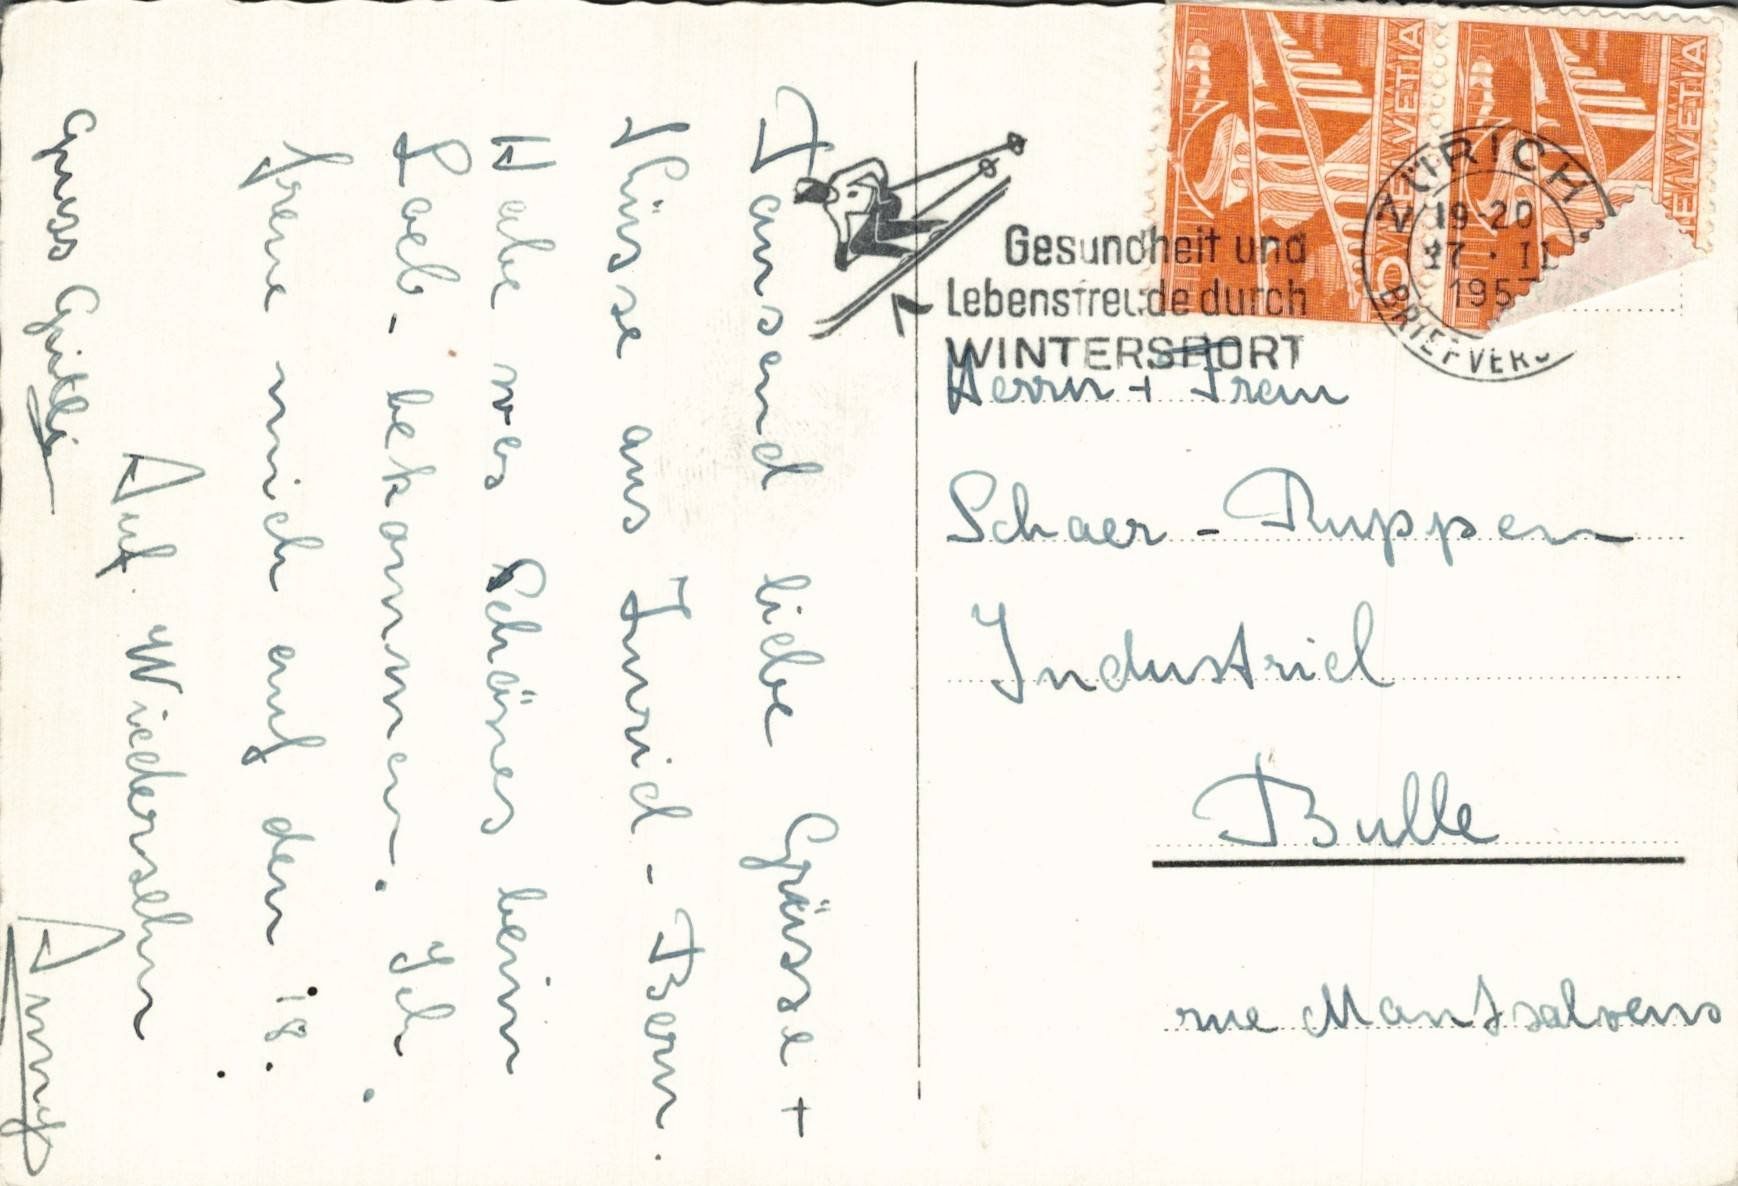 Tausend liebe Grüsse +
Küsse aus Zürich - Bern.
Habe was Schönes beim
Loeb - bekommen. Ich
freue mich auf den 18.
Auf Wiedersehn
Gruss Gritli
Anny
HELVETIA
HELVETIA
ZÜRICH
19-20
II
195
BRIEFVERS
Gesundheit und
Lebensfreude durch
WINTERSPORT
Herrn + Frau
Schaer - Ruppen
Industriel
Bulle
rue Montsalvens